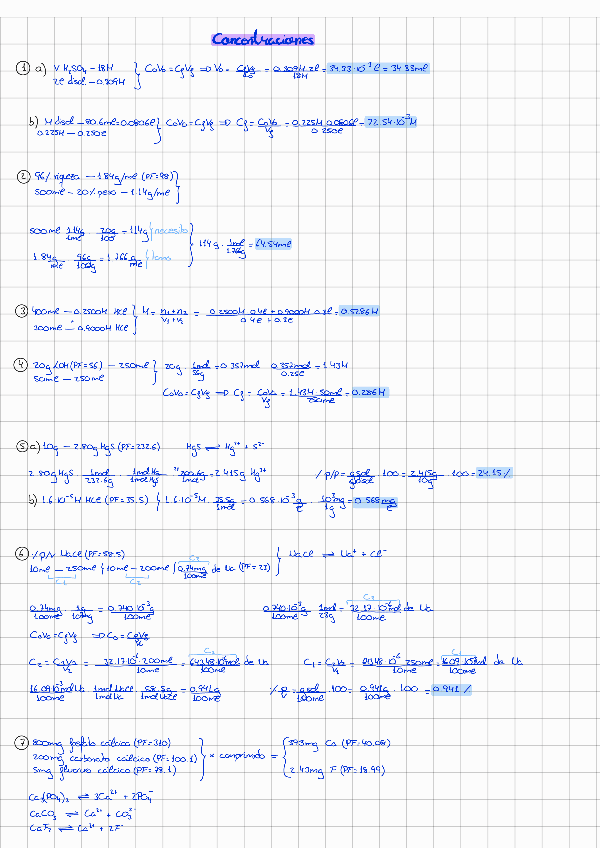 Concentraciones
① a) V H₂SO₄ – 18M } C₀V₀ = CfVf ⇒ V₀ = CfVf/C₀ = 0.309M · 2ℓ/18M = 34.33·10⁻³ ℓ = 34.33mℓ
2ℓ dsol – 0.309M
b) M dsol – 80.6mℓ = 0.0806ℓ } C₀V₀ = CfVf ⇒ Cf = C₀V₀/Vf = 0.225M · 0.0806ℓ/0.250ℓ = 72.54·10⁻³M
0.225M – 0.250ℓ
② 96% riqueza – 1.84g/mℓ (PF=98)
500mℓ – 20% peso – 1.14g/mℓ
500mℓ · 1.14g/1mℓ · 20g/100 = 114g } necesito
} 114g · 1mℓ/1.766g = 64.54mℓ
1.84g/mℓ · 96g/100g = 1.766 g/mℓ } tomo
③ 400mℓ – 0.2500M HCl } M = n₁+n₂/V₁+V₂ = 0.2500M · 0.4ℓ + 0.9000M · 0.2ℓ/0.4ℓ + 0.2ℓ = 0.5286M
200mℓ – 0.9000M HCl
④ 20g KOH (PF=56) – 250mℓ } 20g · 1mol/56g = 0.357mol · 0.357mol/0.25ℓ = 1.43M
50mℓ – 250mℓ
C₀V₀ = CfVf ⇒ Cf = C₀V₀/Vf = 1.43M · 50mℓ/250mℓ = 0.286M
⑤ a) 10g – 2.80g HgS (PF=232.6) HgS ⇌ Hg²⁺ + S²⁻
2.80g HgS · 1mol/232.6g · 1mol Hg/1mol HgS · 200.6g/1mol = 2.415g Hg²⁺ % p/p = g sol/g dsol · 100 = 2.415g/10g · 100 = 24.15%
b) 1.6·10⁻⁵M HCl (PF=35.5) { 1.6·10⁻⁵M · 35.5g/1mol = 0.568·10⁻³ g/ℓ · 10³mg/1g = 0.568 mg/ℓ
⑥ % p/v NaCl (PF=58.5) } NaCl ⇌ Na⁺ + Cl⁻
10mℓ – 250mℓ { 10mℓ – 200mℓ { 0.74mg/100mℓ de Na (PF=23)
C₁ C₂ C₃
0.74mg/100mℓ · 1g/10³mg = 0.740·10⁻³g/100mℓ 0.740·10⁻³g/100mℓ · 1mol/23g = 32.17·10⁻⁶mol/100mℓ de Na
C₀V₀ = CfVf ⇒ C₀ = CfVf/V₀
C₂ = C₃V₃/V₂ = 32.17·10⁻⁶ · 200mℓ/10mℓ = 643.48·10⁻⁶mol/100mℓ de Na C₁ = C₂V₂/V₁ = 643.48·10⁻⁶ · 250mℓ/10mℓ = 16.09·10⁻³mol/100mℓ de Na
16.09·10⁻³mol Na/100mℓ · 1mol NaCl/1mol Na · 58.5g/1mol NaCl = 0.941g/100mℓ % p/v = g sol/100mℓ · 100 = 0.941g/100mℓ · 100 = 0.941%
⑦ 800mg fosfato cálcico (PF=310)
200mg carbonato cálcico (PF=100.1) } × comprimido = { 393mg Ca (PF=40.08)
5mg fluoruro cálcico (PF=78.1) 2.43mg F (PF=18.99)
Ca₃(PO₄)₂ ⇌ 3Ca²⁺ + 2PO₄⁻
CaCO₃ ⇌ Ca²⁺ + CO₃²⁻
CaF₂ ⇌ Ca²⁺ + 2F⁻